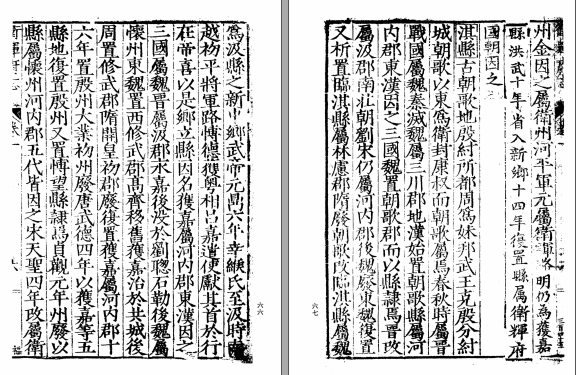 為汲縣之新中鄉武帝元鼎六年幸緱氏至汲時南
越初平將軍路博德獲粵相呂嘉遣使獻其首於行
在帝喜以是鄉立縣因名獲嘉屬河內郡東漢因之
三國屬魏晉屬汲郡永嘉後没於劉聰石勒後魏屬
懷州東魏置西修武郡高齊移舊獲嘉治於共城後
周置修武郡隋開皇初郡廢復置獲嘉屬河內郡十
六年置殷州大業初州廢唐武德四年以獲嘉等五
縣地復置殷州又置博望縣隸焉貞觀元年州廢以
縣屬懷州河內郡五代皆因之宋天聖四年改屬衛
六六
州金因之屬衛州河平軍元屬衛輝路 明仍為獲嘉
縣洪武十年省入新鄉十四年復置縣屬衛輝府
國朝因之
淇縣古朝歌地殷紂所都周爲妹邦武王克殷分紂
城朝歌以東爲衛封康叔而朝歌屬焉春秋時屬晉
戰國屬魏秦滅魏屬三川郡地漢始置朝歌縣屬河
內郡東漢因之三國魏置朝歌郡而以縣隸焉晉改
屬汲郡南北朝劉宋仍屬河內郡後魏廢東魏復置
又析置臨淇縣屬林慮郡隋廢朝歌改臨淇縣屬魏
六七